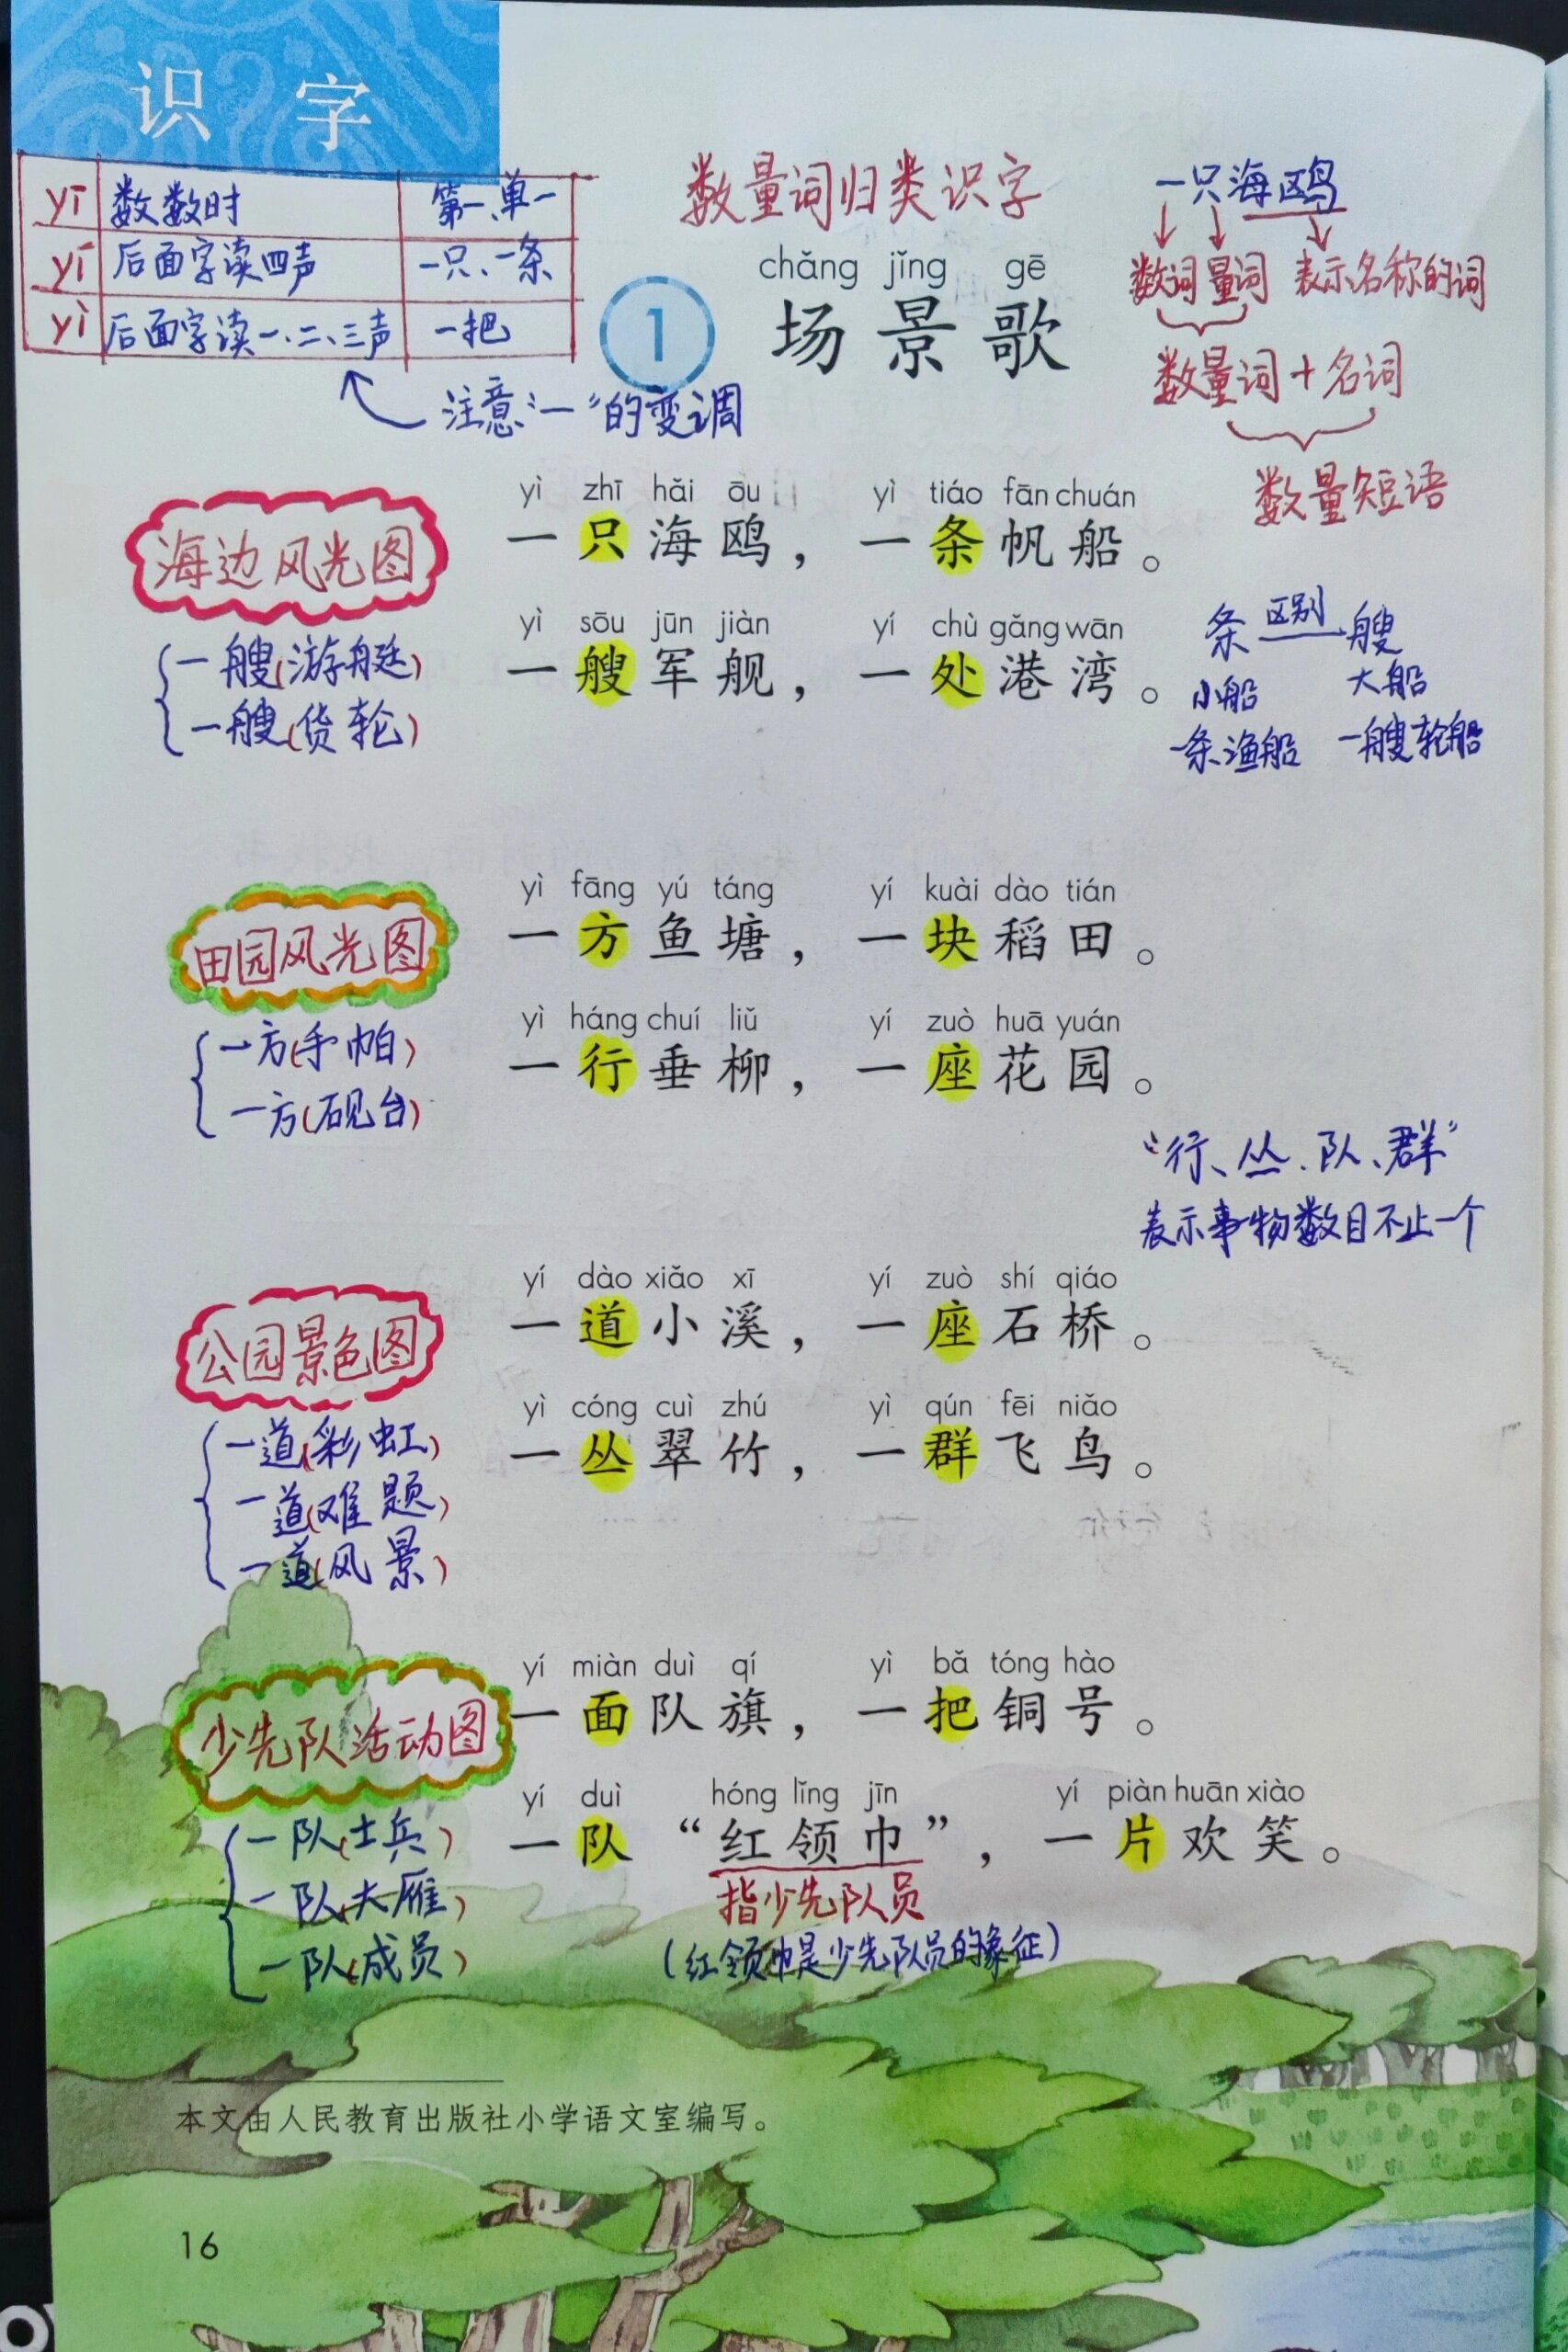 识 字
yī 数数时 第一、单一
yí 后面字读四声 一只、一条
yì 后面字读一、二、三声 一把
注意:“一”的变调
数量词归类识字
chǎng jǐng gē
1 场景歌
一只海鸥
数词 量词 表示名称的词
数量词+名词
数量短语
yì zhī hǎi ōu yì tiáo fān chuán
一只海鸥，一条帆船。
yì sōu jūn jiàn yí chù gǎng wān
一艘军舰，一处港湾。
海边风光图
一艘(游艇)
一艘(货轮)
条 区别 艘
小船 大船
一条渔船 一艘轮船
yì fāng yú táng yí kuài dào tián
一方鱼塘，一块稻田。
yì háng chuí liǔ yí zuò huā yuán
一行垂柳，一座花园。
田园风光图
一方(手帕)
一方(砚台)
“行、丛、队、群”
表示事物数目不止一个
yí dào xiǎo xī yí zuò shí qiáo
一道小溪，一座石桥。
yì cóng cuì zhú yì qún fēi niǎo
一丛翠竹，一群飞鸟。
公园景色图
一道(彩虹)
一道(难题)
一道(风景)
yí miàn duì qí yì bǎ tóng hào
一面队旗，一把铜号。
yí duì hóng lǐng jīn yí piàn huān xiào
一队“红领巾”，一片欢笑。
指少先队员
(红领巾是少先队员的象征)
少先队活动图
一队(士兵)
一队(大雁)
一队(成员)
本文由人民教育出版社小学语文室编写。
16